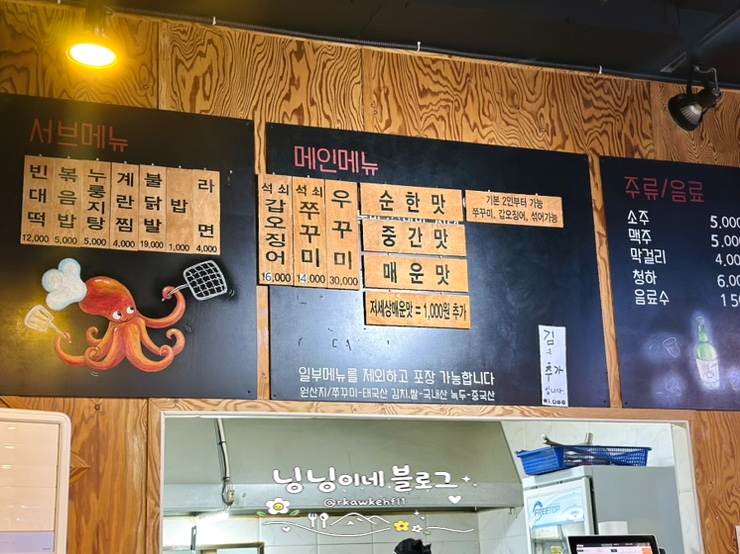 서브메뉴
빈대떡 12,000
볶음밥 5,000
누룽지탕 5,000
계란찜 4,000
불닭발 19,000
밥 1,000
라면 4,000
메인메뉴
석쇠갑오징어 16,000
석쇠쭈꾸미 14,000
우꾸미 30,000
순한맛
중간맛
매운맛
저세상매운맛 = 1,000원 추가
기본 2인부터 가능
쭈꾸미, 갑오징어, 섞어가능
일부메뉴를 제외하고 포장 가능합니다
원산지/쭈꾸미-태국산 김치,쌀-국내산 녹두-중국산
주류/음료
소주 5,00
맥주 5,00
막걸리 4,00
청하 6,00
음료수
닝닝이네 블로그
@rkawkehf11